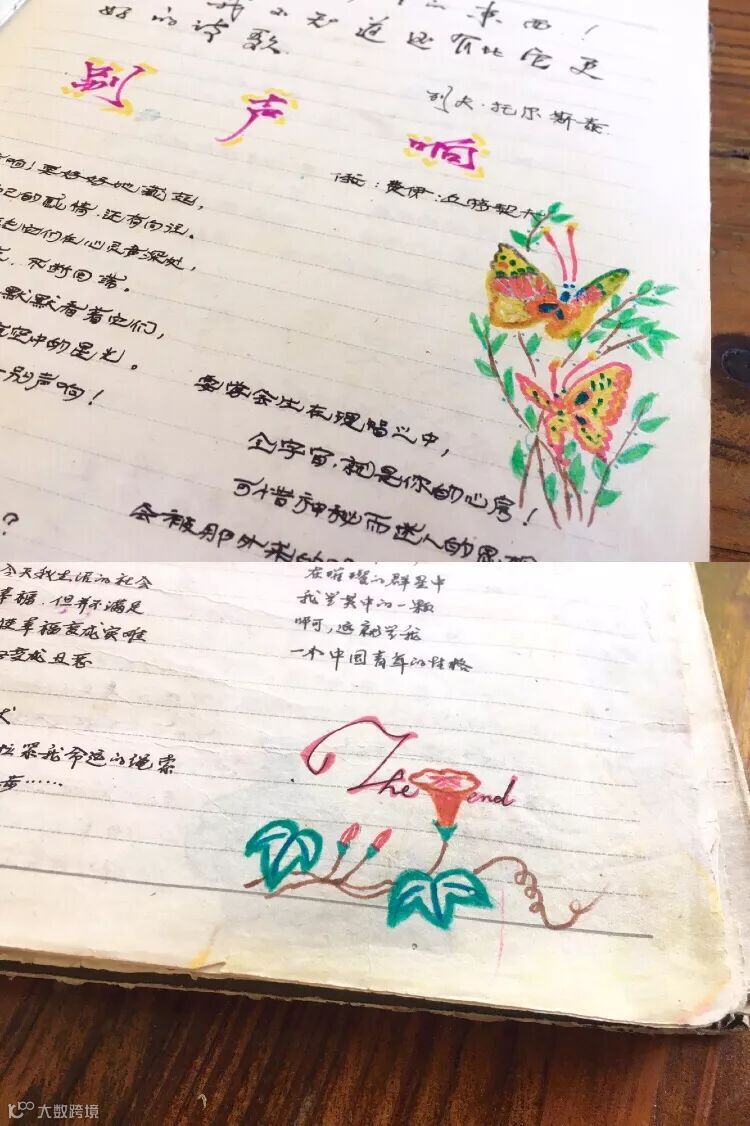 东西！
我不知道还有比它更
好的诗歌
列夫·托尔斯泰
别声响
俄：费伊·丘特契夫
响！要好好地藏起，
己的感情，还有向往。
它们在心灵着深处，
不断回荡。
默默看着它们，
空中的星光。
别声响！
要学会生在理想之中，
个宇宙，就是你的心房！
可惜神秘而迷人的思想
会被那外来的
？
今天我生活的社会
幸福，但并不满足
使幸福变成灾难
变成丑恶
拉紧我命运的绳索
……
在璀璨的群星中
我是其中的一颗
啊，这就是我
一个中国青年的性格
The end
大数跨境